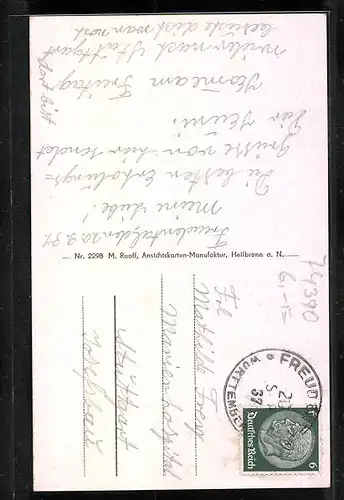 Freudental, den 20.9.37
Meine Liebe!
Die besten Erholungs=
grüße von hier sendet
Dir Heini.
Komme am Freitag
wieder nach Stuttgart
besuche dich wann noch
dort bist
Nr. 2298 M. Ruoff, Ansichtskarten-Manufaktur, Heilbronn a. N.
74390
6,-
Frl
Mathilde Frey
Marienhospital
Stuttgart
FREUDE
WÜRTTEMBE
20
37
Deutsches Reich
6